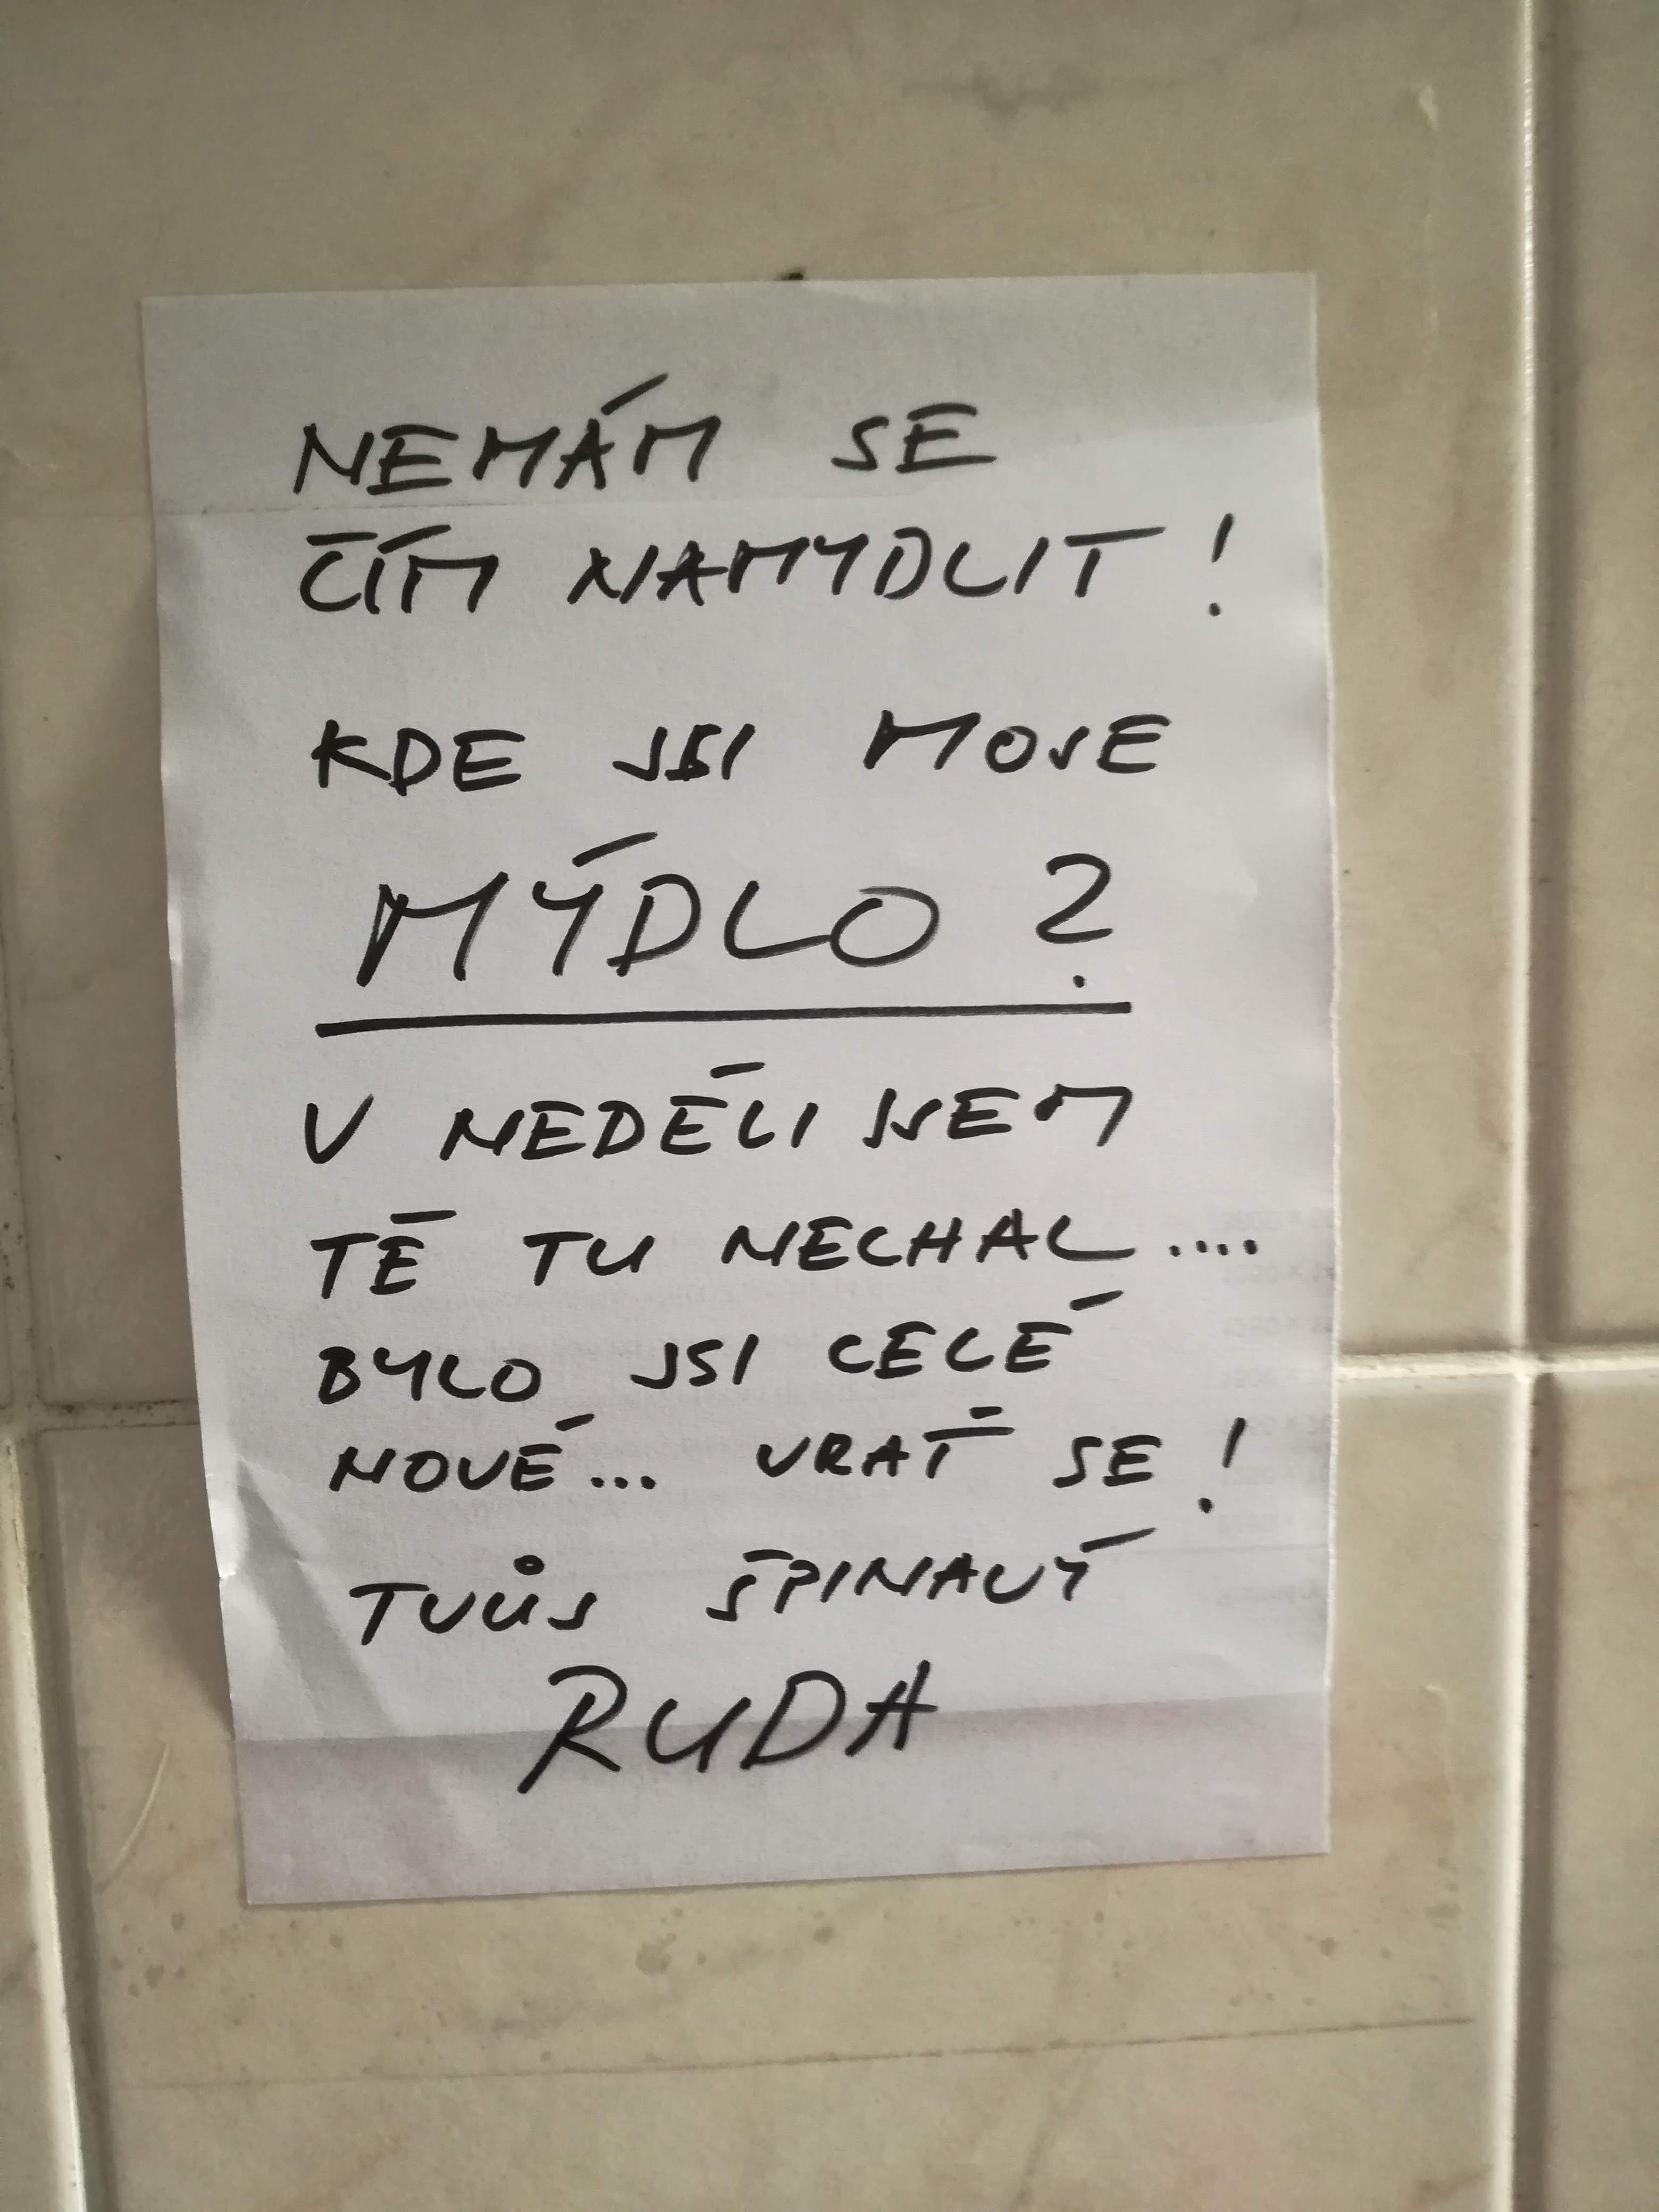 NEMÁM SE
ČÍM NAMYDLIT!
KDE JSI MOJE
MÝDLO?
V NEDĚLI JSEM
TĚ TU NECHAL....
BYLO JSI CELÉ
NOVÉ... VRAŤ SE!
TVŮJ ŠPINAVÝ
RUDA